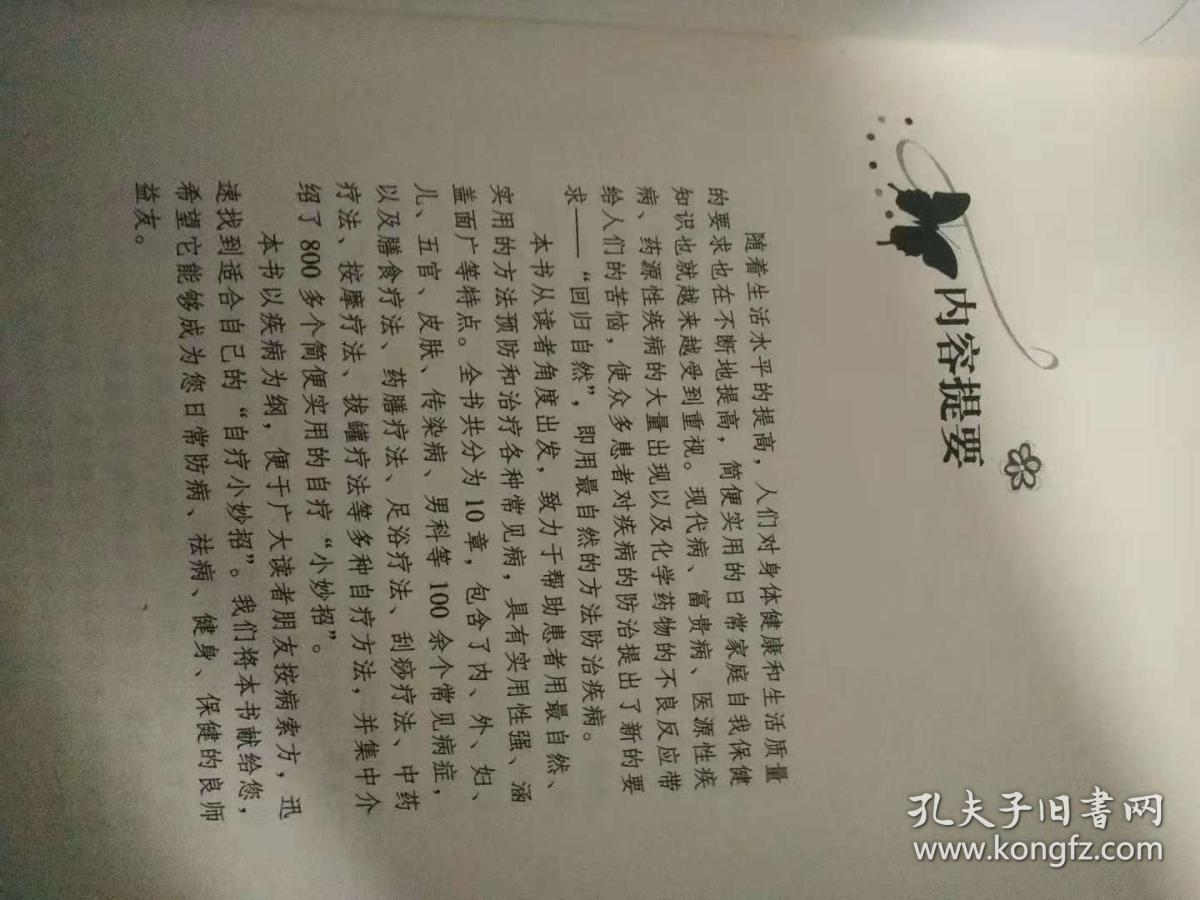 内容提要
随着生活水平的提高，人们对身体健康和生活质量
的要求也在不断地提高，简便实用的日常家庭自我保健
知识也就越来越受到重视。现代病、富贵病、医源性疾
病、药源性疾病的大量出现以及化学药物的不良反应带
给人们的苦恼，使众多患者对疾病的防治提出了新的要
求——“回归自然”，即用最自然的方法防治疾病。
本书从读者角度出发，致力于帮助患者用最自然、
实用的方法预防和治疗各种常见病，具有实用性强、涵
盖面广等特点。全书共分为10章，包含了内、外、妇、
儿、五官、皮肤、传染病、男科等100余个常见病症，
以及膳食疗法、药膳疗法、足浴疗法、刮痧疗法、中药
疗法、按摩疗法、拔罐疗法等多种自疗方法，并集中介
绍了800多个简便实用的自疗“小妙招”。
本书以疾病为纲，便于广大读者朋友按病索方，迅
速找到适合自己的“自疗小妙招”。我们将本书献给您，
希望它能够成为您日常防病、祛病、健身、保健的良师
益友。
孔夫子旧书网
www.kongfz.com